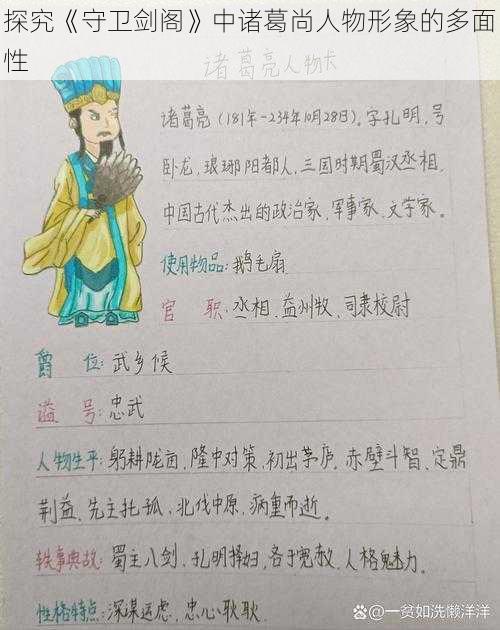 探究《守卫剑阁》中诸葛尚人物形象的多面
性
诸葛亮人物卡
诸葛亮(181年-234年10月28日)。字孔明,号
卧龙,琅琊阳都人,三国时期蜀汉丞相,
中国古代杰出的政治家,军事家,文学家。
使用物品:鹅毛扇
官 职:丞相、益州牧、司隶校尉
爵 位:武乡候
谥 号:忠武
人物生平:躬耕陇亩,隆中对策,初出茅庐,赤壁斗智,定鼎
荆益、先主托孤,北伐中原,病重而逝。
轶事典故:蜀主八剑,孔明择妇,各于宽赦,人格魅力。
性格特点:深谋远虑,忠心耿耿
@一贫如洗懒洋洋